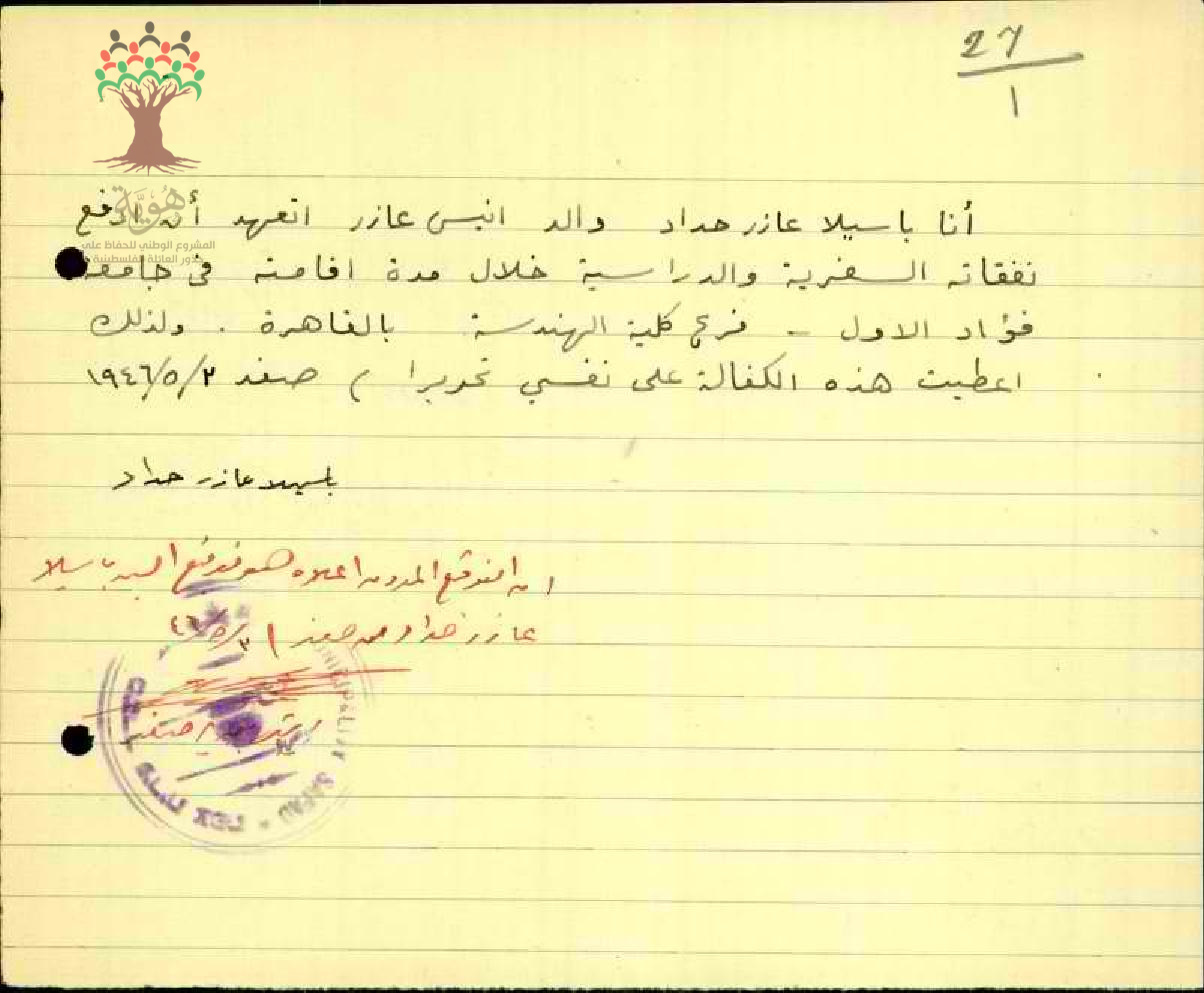 27
1
هُوِيَّة
المشروع الوطني للحفاظ على
جذور العائلة الفلسطينية
أنا باسيلا عازر حداد والد انيس عازر اتعهد أن ادفع
نفقاته السفرية والدراسية خلال مدة اقامته في جامعة
فؤاد الاول - فرع كلية الهندسة بالقاهرة . ولذلك
اعطيت هذه الكفالة على نفسي تحريرا ) صفد ٣/٥/١٩٤٦
باسيلا عازر حداد
ان التوقيع المدون اعلاه هو توقيع السيد باسيلا
عازر حداد من صفد ٣/٥/٤٦
صفد
SAFAD